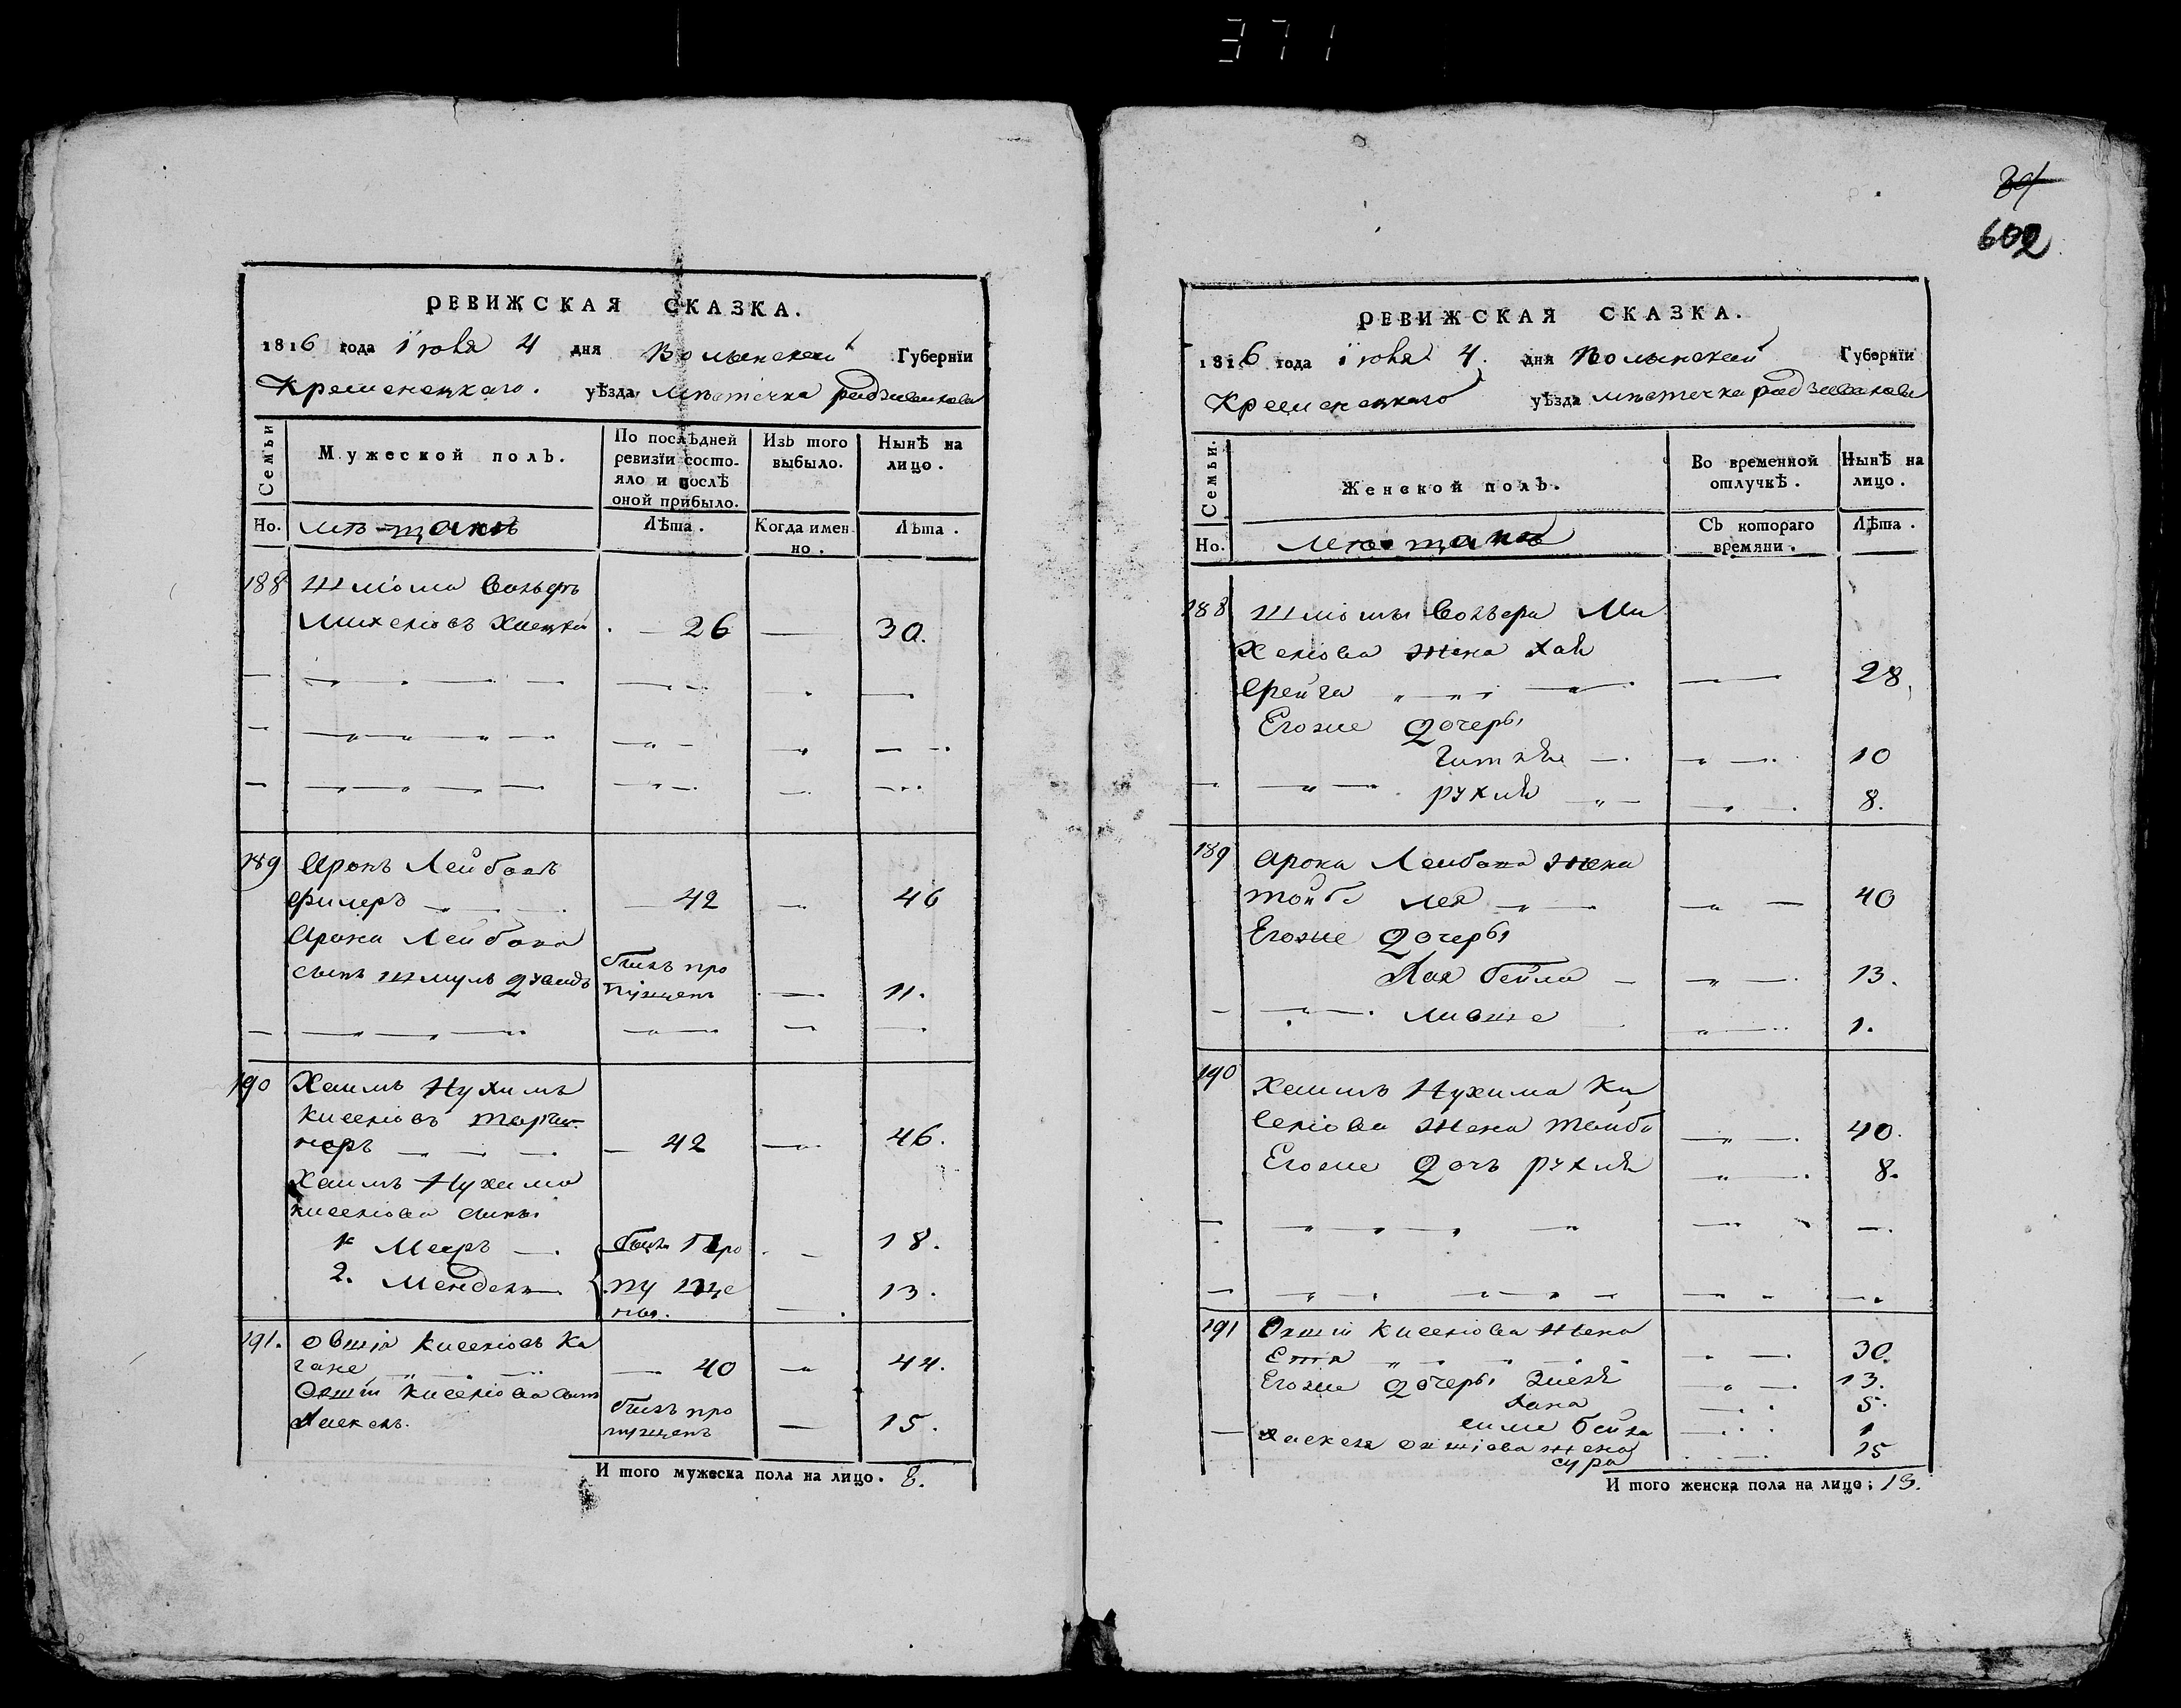 371
602
РЕВИЖСКАЯ СКАЗКА.
1816 года Iюня 4 дня Волынской Губернїи
Кременецкаго. уѣзда мѣстечка радзивилова
Семьи
Мужеской полЪ.
По послѣдней ревизїи состо-
яло и послѣ
оной прибыло.
ИзЪ того выбыло.
Нынѣ на лицо.
Но. мѣщанъ
Лѣта.
Когда имен
но.
Лѣта.
188 Шмïома Вольфъ
Михелïовъ 26 30.
189 Аронъ Лейбовъ
42 46
Арона Лейбова
сынъ Шмуль былъ про
пущенъ 11.
190 Хаимъ Нухимъ
Киселïовъ
42 46.
Хаимъ Нухима
Киселïова сыны
1 Мееръ 18.
2. Мендель 13.
191. Овшiя Киселïовъ Ка
гане 40 44.
Овшiи Киселïова сынъ
Хаскель. былъ про
пущенъ 15.
И того мужеска пола на лицо. 8.
РЕВИЖСКАЯ СКАЗКА.
1816 года ïюня 4. дня Волынской Губернїи
Кременецкаго уѣзда мѣстечка радзивилова
Семьи.
Женской полЪ.
Во временной отлучкѣ.
Нынѣ на лицо.
Но. мѣщанъ
СЪ котораго времяни.
Лѣта.
188 Шмïомы Вольфа Ми
хелïова жена Хая
Фрейга 28.
Егоже дочеры
Гитля 10
рухля 8.
189 Арона Лейбова жена
Тойба Лея 40
Егоже дочеры
Хая Бейла 13.
Ливше 1.
190 Хаимъ Нухима Ки
селïова жена Тайба 40.
Егоже дочь рухля 8.
191 Овшiи Киселïова жена
Етя 30.
Егоже дочеры 13.
Хана 5.
симе Бейла 1
Хаскеля Овшïова жена
сура 15
И того женска пола на лицо: 13.